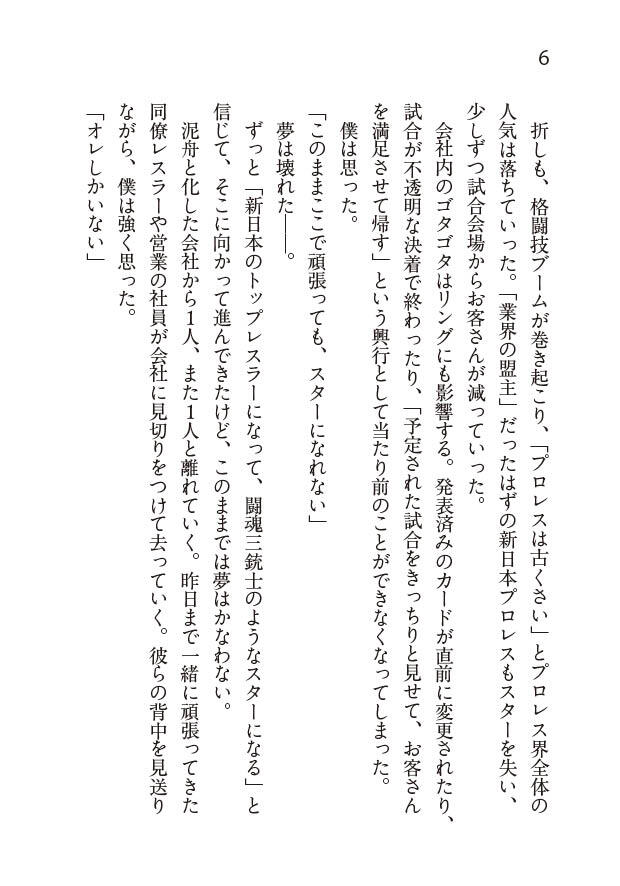 6
折しも、格闘技ブームが巻き起こり、「プロレスは古くさい」とプロレス界全体の
人気は落ちていった。「業界の盟主」だったはずの新日本プロレスもスターを失い、
少しずつ試合会場からお客さんが減っていった。
会社内のゴタゴタはリングにも影響する。発表済みのカードが直前に変更されたり、
試合が不透明な決着で終わったり、「予定された試合をきっちりと見せて、お客さん
を満足させて帰す」という興行として当たり前のことができなくなってしまった。
僕は思った。
「このままここで頑張っても、スターになれない」
夢は壊れた――。
ずっと「新日本のトップレスラーになって、闘魂三銃士のようなスターになる」と
信じて、そこに向かって進んできたけど、このままでは夢はかなわない。
泥舟と化した会社から1人、また1人と離れていく。昨日まで一緒に頑張ってきた
同僚レスラーや営業の社員が会社に見切りをつけて去っていく。彼らの背中を見送り
ながら、僕は強く思った。
「オレしかいない」